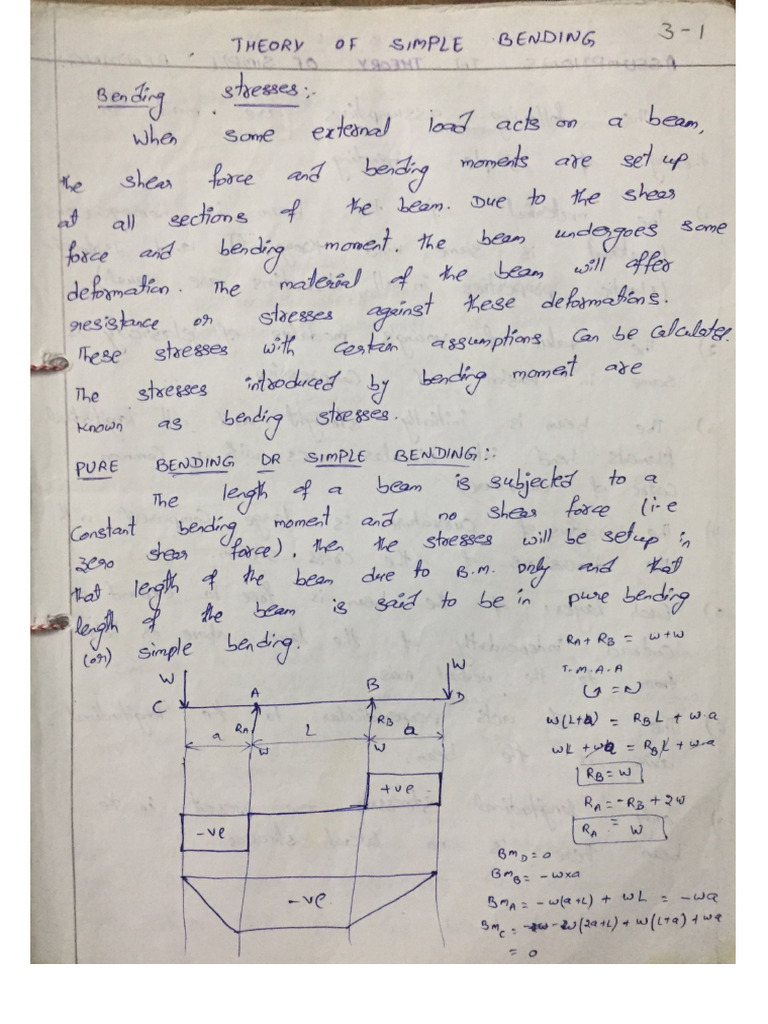 THEORY OF SIMPLE BENDING 3-1
Bending stresses:-
When some external load acts on a beam,
the shear force and bending moments are set up
at all sections of the beam. Due to the shear
force and bending moment. the beam undergoes some
deformation. The material of the beam will offer
resistance or stresses against these deformations.
These stresses with certain assumptions can be calculates.
The stresses introduced by bending moment are
known as bending stresses.
PURE BENDING OR SIMPLE BENDING:-
The length of a beam is subjected to a
Constant bending moment and no shear force (i-e
zero shear force), then the stresses will be setup in
that length of the beam due to B.M. only and that
length of the beam is said to be in pure bending
(or) simple bending.
RA + RB = W+W
T.M.A.A
W(L+a) = RB L + W.a
WL + Wa = RB L + W.a
RB = W
RA = -RB + 2W
RA = W
W W
C A B D
RA RB
a L a
W W
+ve
-ve
-ve
BMD = 0
BMB = -W×a
BMA = -W(a+L) + WL = -Wa
W(2a+L) + W(L+a) + Wa
= 0